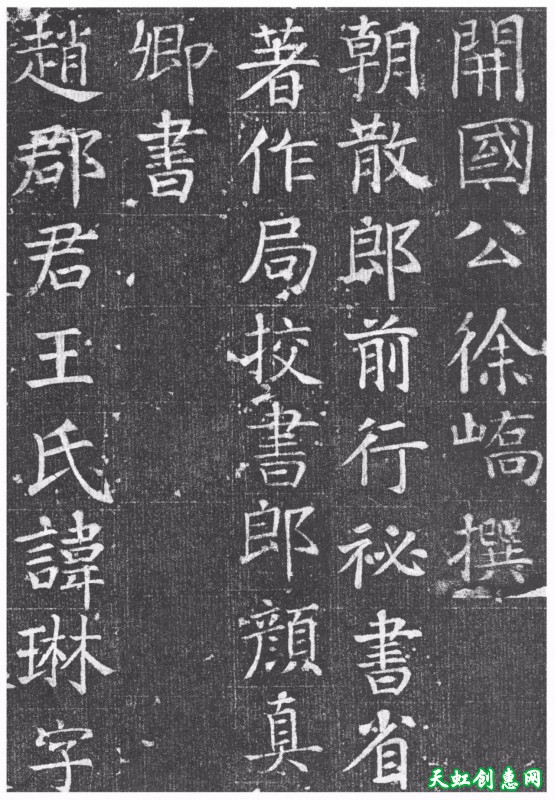 開國公徐嶠撰
朝散郎前行祕書省
著作局挍書郎顏真
卿書
趙郡君王氏諱琳字
天虹创惠网